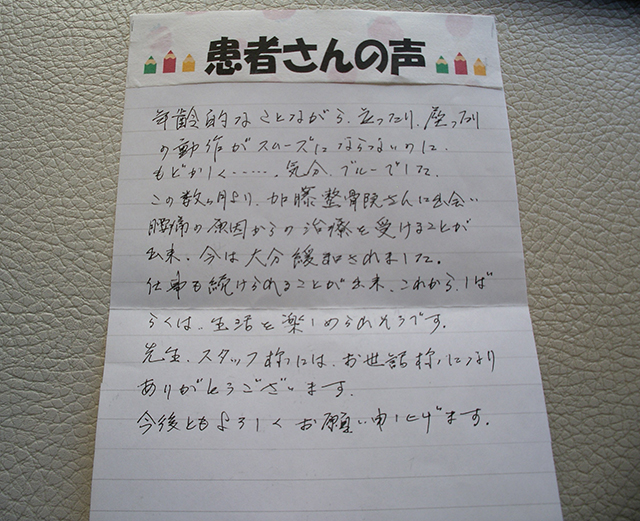 患者さんの声
年齢的なことながら、立ったり、座ったり
の動作がスムーズにならないのに、
もどかしく……、気分、ブルーでした。
この数ヶ月より、加藤整骨院さんに出会い
腰痛の原因からの治療を受けることが
出来、今は大分緩和されました。
仕事も続けられることが出来、これから、しば
らくは、生活を楽しめられそうです。
先生、スタッフ様には、お世話様になり
ありがとうございます。
今後ともよろしくお願い申し上げます。